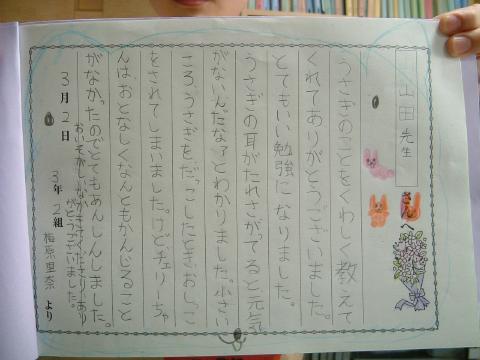 山田先生さんへ
うさぎのことをくわしく教えて
くれてありがとうございました。
とてもいい勉強になりました。
うさぎの耳がたれさがてると元気
がないんだなァとわかりました。小さい
ころ、うさぎをだっこしたとき、おしっこ
をされてしまいました。けど、チェリーちゃ
んは、おとなしくなんともかんじること
がなかったのでとてもあんしんしました。
おいそがしいなかきてくださりあり
がとうございました。
3月2日 3年2組 梅原里奈より